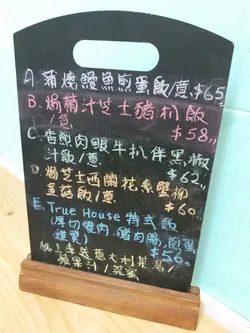 A. 蒲燒鰻魚煎蛋飯/意 $65
B. 焗葡汁芝士豬扒飯
/意 $58,,
C. 香煎肉眼牛扒伴黑椒
汁飯/意 $62,,
D. 焗芝士西蘭花煮蟹柳
金菇飯/意 $60,,
E. True House 特式飯
(厚切餐肉、豬肉腸、煎蛋
雜菜) $56,,
跟:走甚意大利菜湯/
蘋果汁/菜蜜